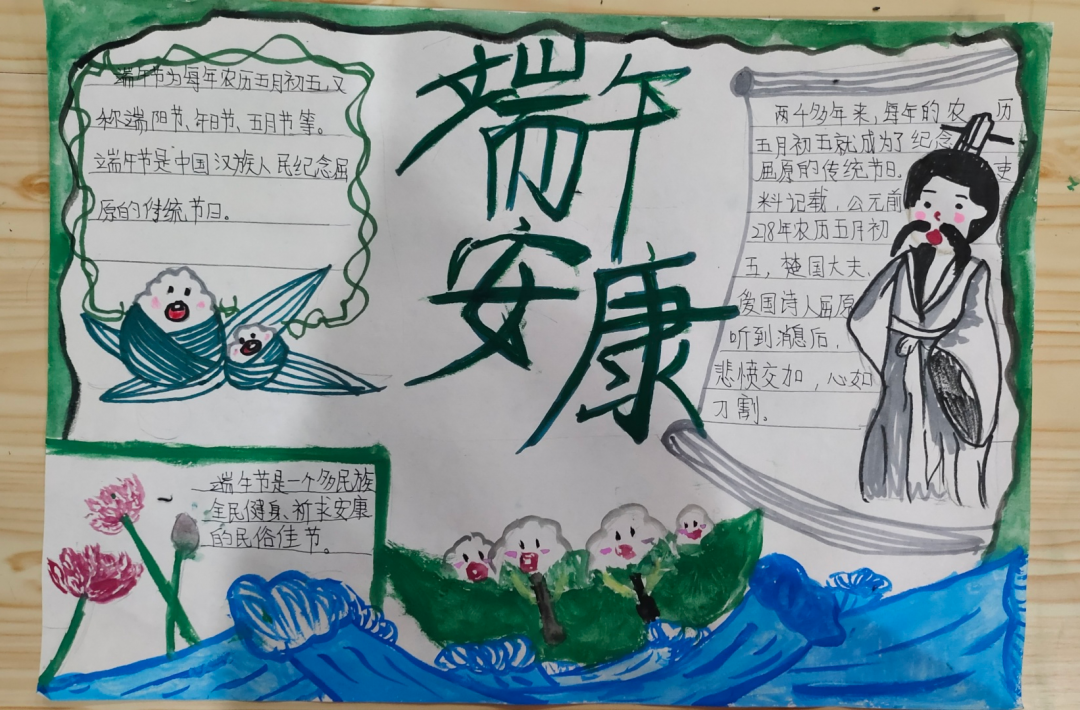 端午节为每年农历五月初五,又
称端阳节、午日节、五月节等。
端午节是中国汉族人民纪念屈
原的传统节日。
端午
安康
两千多年来,每年的农历
五月初五就成为了纪念
屈原的传统节日。史
料记载,公元前
278年农历五月初
五,楚国大夫、
爱国诗人屈原
听到消息后,
悲愤交加,心如
刀割。
端午节是一个多民族
全民健身、祈求安康
的民俗佳节。